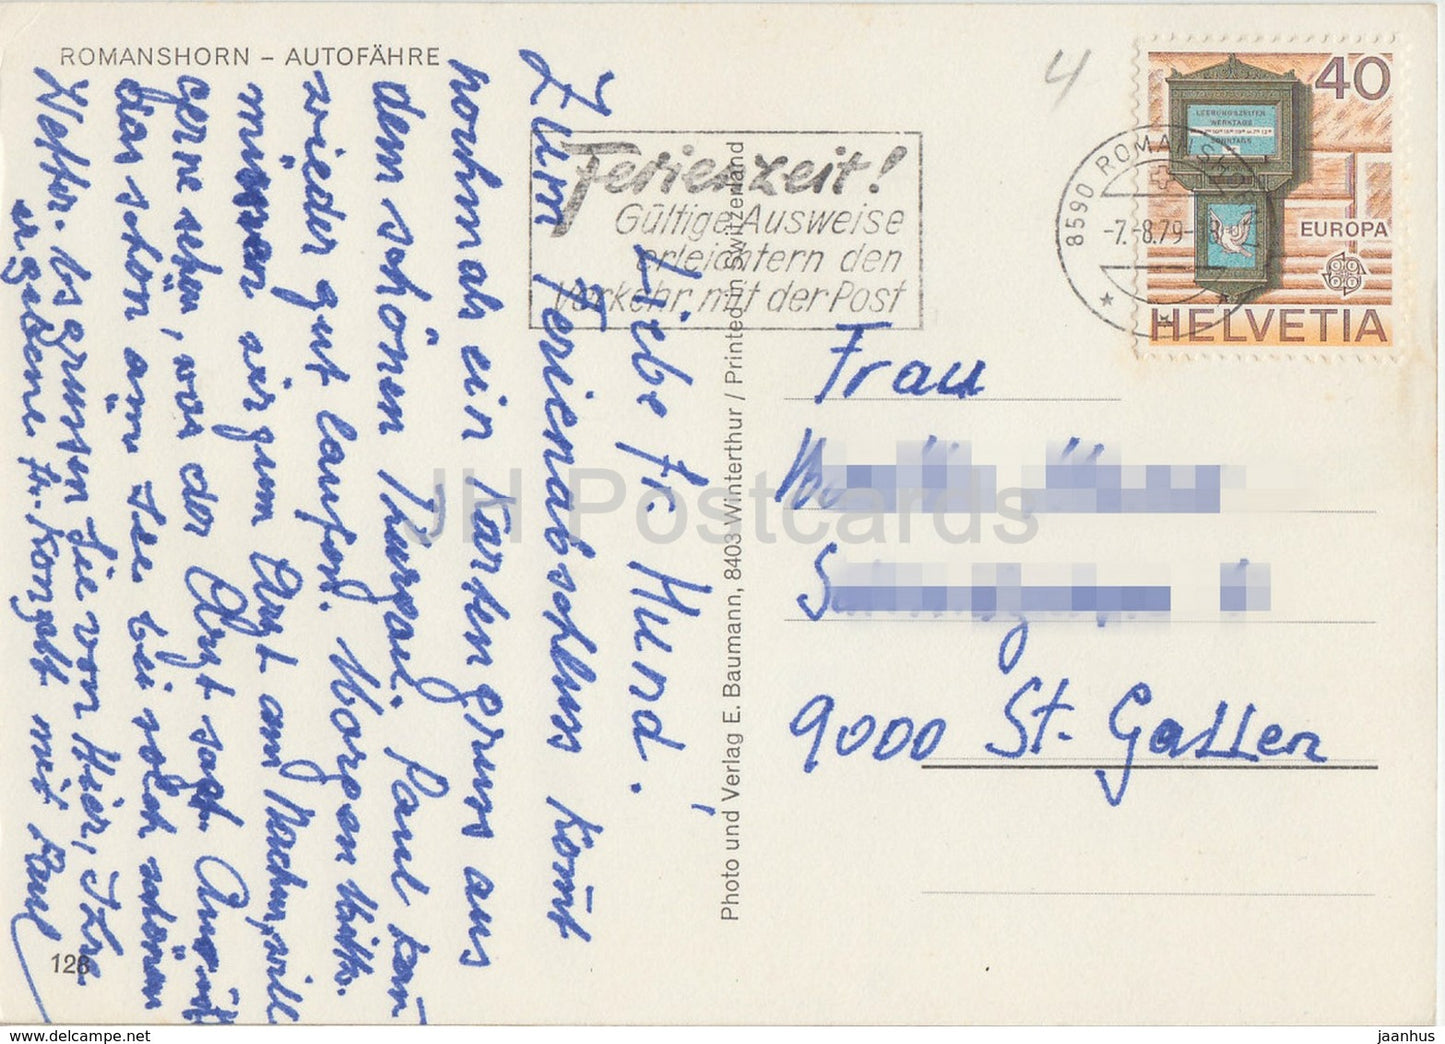 ROMANSHORN – AUTOFÄHRE
4
40
LEERUNGSZEITEN
WERKTAGS
SONNTAGS
EUROPA
HELVETIA
8590 ROMANSHORN
-7.-8.79-
Ferienzeit!
Gültige Ausweise
erleichtern den
Verkehr mit der Post
Liebe Fr. Hund!
Zum Ferienabschluss komt
nochmals ein Kartengruss aus
dem schönen Thurgau. Paul kan
wieder gut laufen. Morgen Mitto.
müssen wir zum Arzt am Nachm, will
gerne sehen, was der Arzt sagt.
das schön am See bei solch schönem
Wetter. Es grüssen Sie von Hier, Ihre
ergebene Fr. mit Paul
Frau
9000 St. Gallen
Photo und Verlag E. Baumann, 8403 Winterthur / Printed in Switzerland
128
JH Postcards
www.delcampe.net
jaanhus